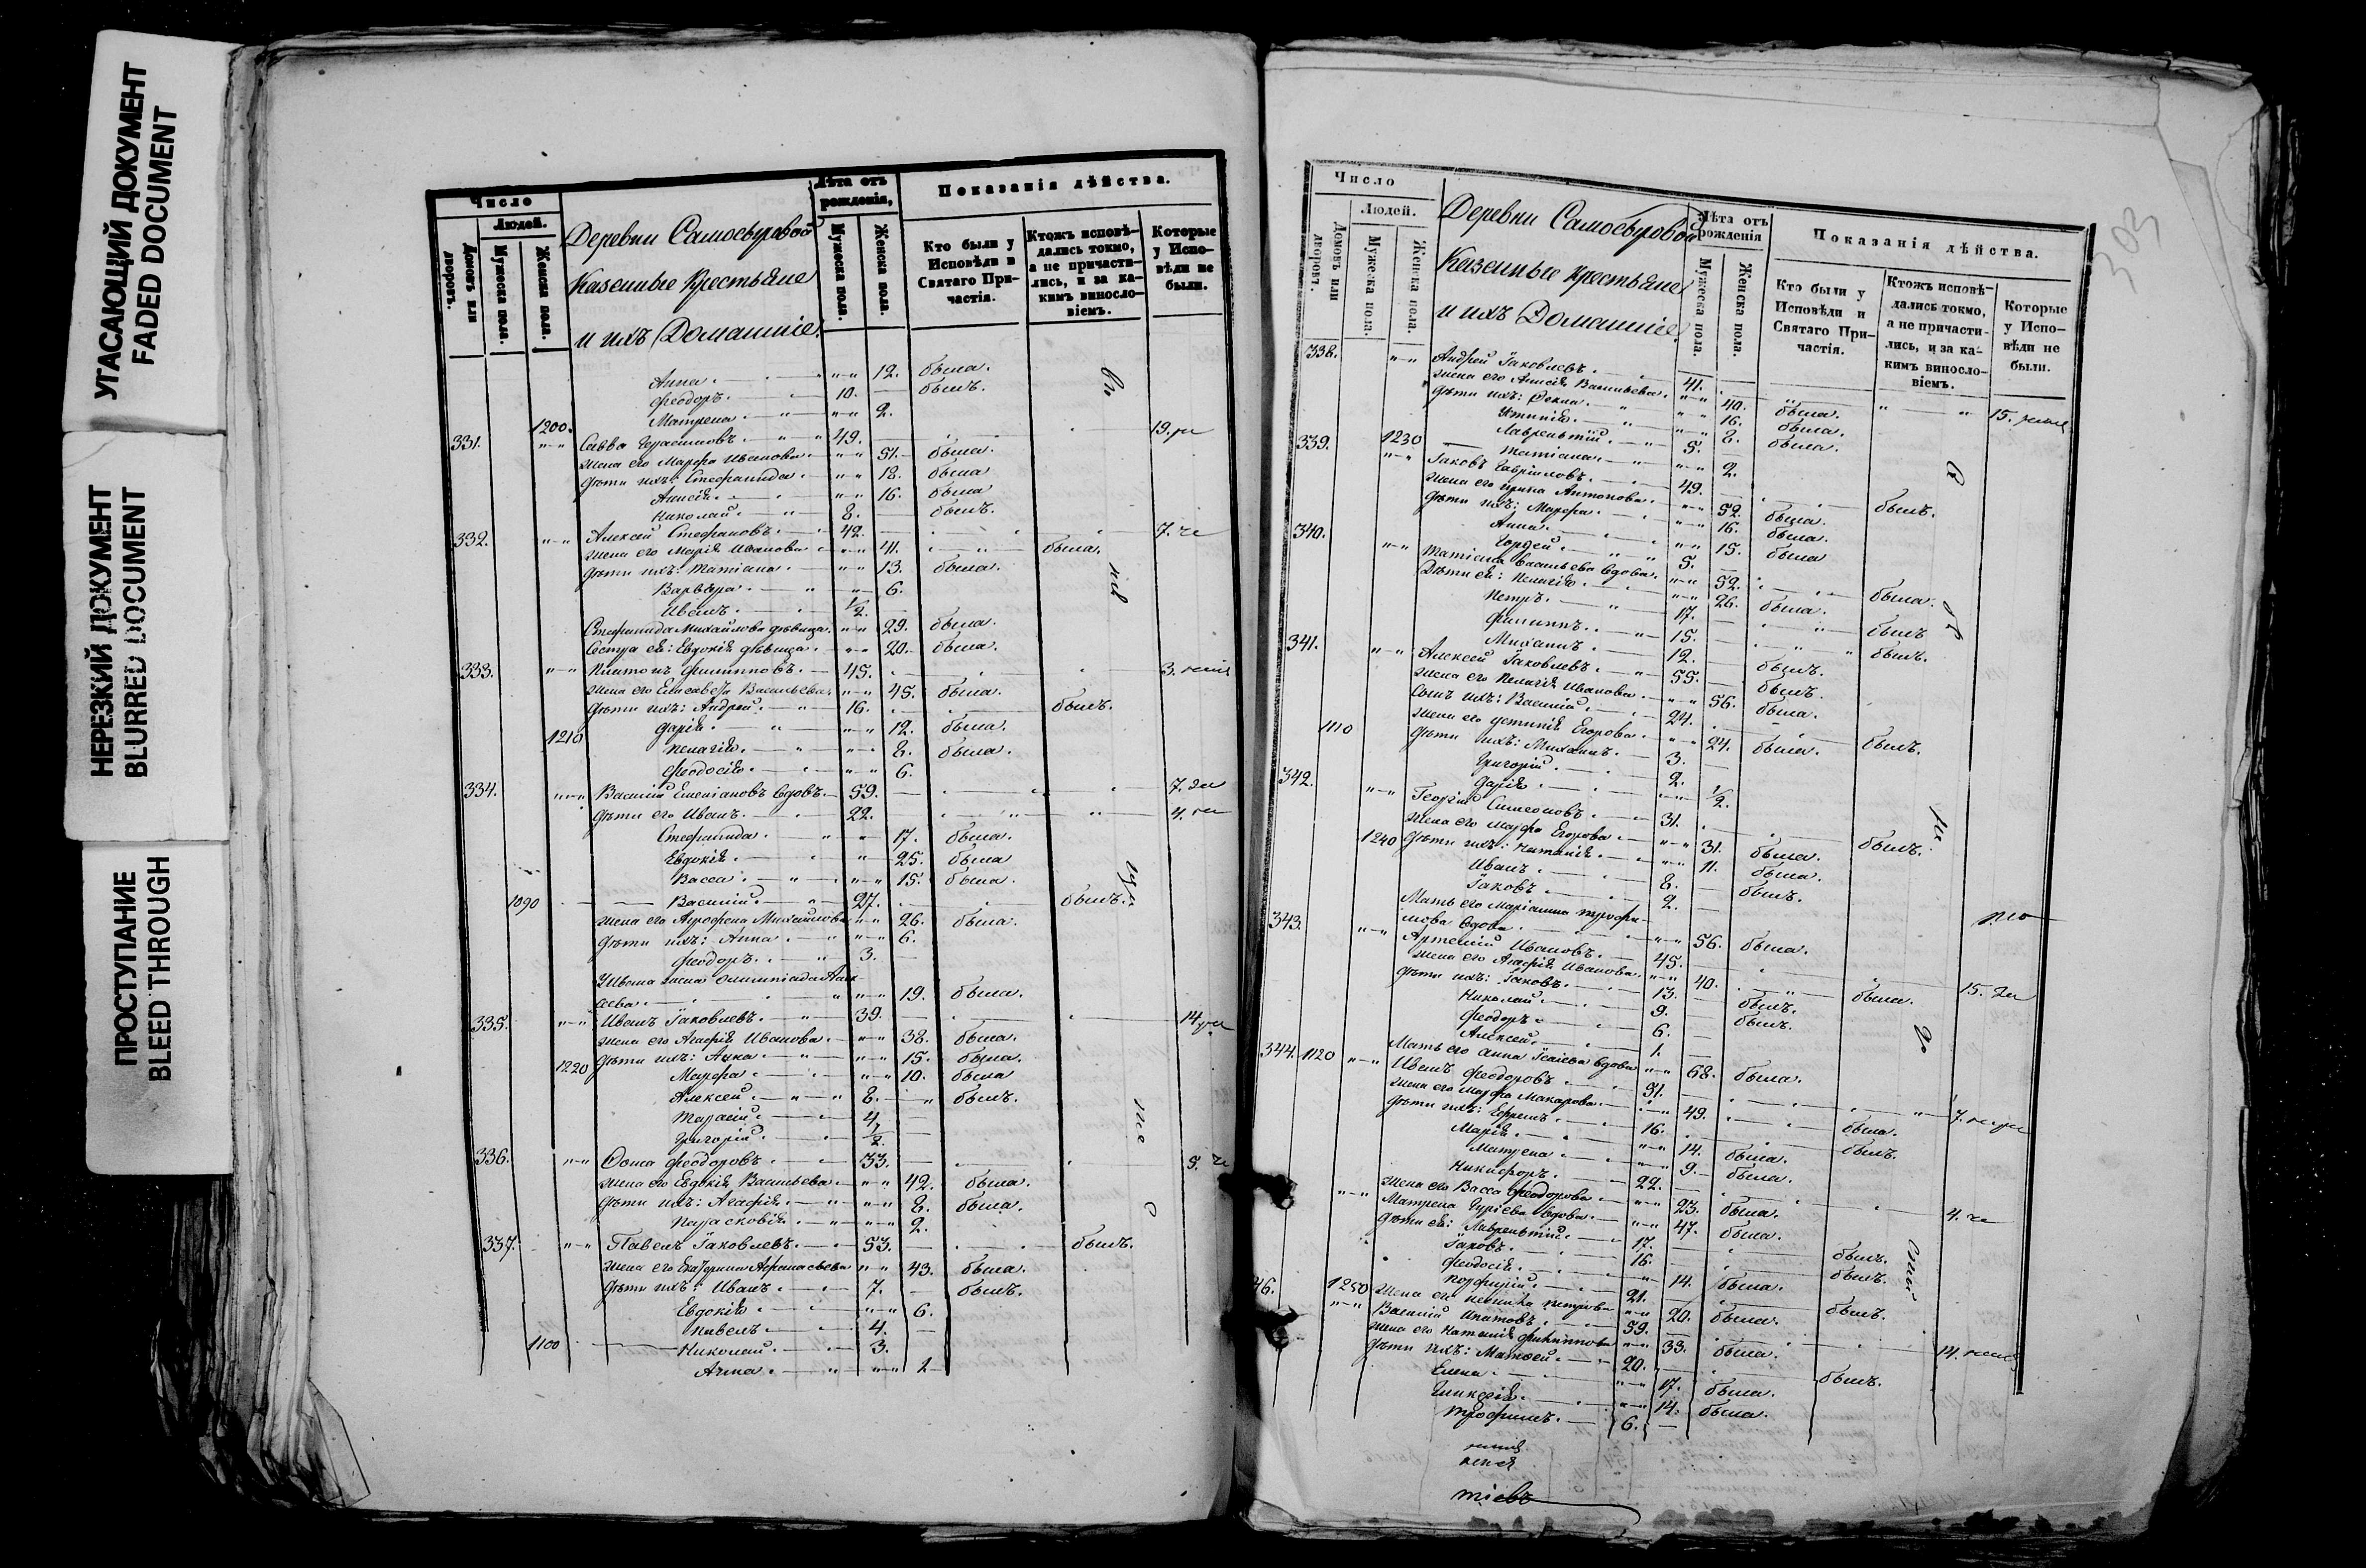 УГАСАЮЩИЙ ДОКУМЕНТ
FADED DOCUMENT
НЕРЕЗКИЙ ДОКУМЕНТ
BLURRED DOCUMENT
ПРОСТУПАНИЕ
BLEED THROUGH
Число
Людей.
Домовъ или дворовъ.
Мужеска пола.
Женска пола.
Деревни Самосыровой
Казенные Крестьяне
и ихъ Домашніе.
Лѣта отъ рожденія,
Мужеска пола.
Женска пола.
Показанія дѣйства.
Кто были у Исповѣди и Святаго Причастія.
Ктожъ исповѣдались токмо, а не причастились, и за какимъ винословіемъ.
Которые у Исповѣди не были.
Анна 12. была.
Феодоръ 10. былъ.
1200. Матрена 2.
331. Савва Герасимовъ 49. 19.
жена его Марфа Иванова 51. была.
дѣти ихъ: Стефанида 18. была
Анисія 16. была
Николай 8. былъ.
332. Алексѣй Стефановъ 42. 7.
жена его Марія Иванова 41. была.
дѣти ихъ: Татіана 13. была.
Варвара 6.
Иванъ 1/2.
Стефанида Михайлова дѣвица 29. была.
Сестра ея: Евдокія дѣвица 20. была.
333. Платонъ Филипповъ 45. 3.
жена его Елисавета Васильева 45. была.
дѣти ихъ: Андрей 16. былъ.
Дарія 12. была.
1210 Пелагія 8. была.
Феодосія 6.
334. Василій Емеліановъ вдовъ 59. 7.
дѣти его Иванъ 22. 4.
Стефанида 17. была.
Евдокія 25. была
Васса 15. была.
1090 Василій 27. былъ.
жена его Агрофена Михайлова 26. была.
дѣти ихъ: Анна 6.
Феодоръ 3.
У Ивана жена Олимпіада
19. была.
335. Иванъ Іаковлевъ 39. 14.
жена его Агафія Иванова 38. была.
1220 дѣти ихъ: Анна 15. была.
Марфа 10. была
Алексѣй 8. былъ.
Тарасій 4.
Григорій 1/2.
336. Ѳома Феодоровъ 33. 5.
жена его Евдокія Васильева 42. была.
дѣти ихъ: Агафія 8. была.
Парасковія 2.
337. Павелъ Іаковлевъ 53. былъ.
жена его Екатерина Афанасьева 43. была.
дѣти ихъ: Иванъ 7. былъ.
Евдокія 6.
Павелъ 4.
1100 Николай 3.
Анна 1
303
Число
Людей.
Домовъ или дворовъ.
Мужеска пола.
Женска пола.
Деревни Самосыровой
Казенные Крестьяне
и ихъ Домашніе.
Лѣта отъ рожденія
Мужеска пола.
Женска пола.
Показанія дѣйства.
Кто были у Исповѣди и Святаго Причастія.
Ктожъ исповѣдались токмо, а не причастились, и за какимъ винословіемъ.
Которые у Исповѣди не были.
338. Андрей Іаковлевъ 41. 15.
жена его Анисія Васильева 40. была.
дѣти ихъ: Ѳекла 16. была.
Устинія 8. была.
Лаврентій 5.
1230 Татіана 2.
339. Іаковъ Гавриловъ 49. былъ.
жена его Ирина Антонова 52. была.
дѣти ихъ: Марфа 16. была.
Анна 15. была
Гордѣй 5.
340. Татіана Васильева вдова 52. была.
Дѣти ея: Пелагія 26. была.
Петръ 17. былъ
Филиппъ 15. былъ.
Михаилъ 12. былъ.
341. Алексѣй Іаковлевъ 55. былъ.
жена его Пелагія Иванова 56. была.
Сынъ ихъ: Василій 24. былъ.
жена его Устинія Егорова 24. была.
1110 дѣти ихъ: Михаилъ 3.
Григорій 2.
Дарія 1/2.
342. Георгій Симеоновъ 31. былъ.
жена его Марфа Егорова 31. была.
1240 дѣти ихъ: Наталія 11. была.
Иванъ 8. былъ.
Іаковъ 2.
Мать его Маріанна Трофимова вдова 56. была.
343. Артемій Ивановъ 45. 15.
жена его Агафія Иванова 40. была.
дѣти ихъ: Іаковъ 13. былъ.
Николай 9. былъ.
Феодоръ 6.
Алексѣй 1.
Мать его Анна Ісаіева вдова 68. была.
344. 1120 Иванъ Феодоровъ 51. 7.
жена его Марфа Макарова 49. была.
дѣти ихъ: Ефремъ 16. былъ.
Марія 14. была.
Матрена 9. была.
Никифоръ 22. 4.
жена его Васса Феодорова 23. была.
Матрена Гуріева вдова 47. была.
дѣти ея: Лаврентій 17. былъ.
Іаковъ 16. былъ.
Феодосія 14. была.
Порфирій 21. былъ.
1250 жена его Петрова 20. была.
46. Василій Ипатовъ 59. 14.
жена его Наталія Филиппова 33. была.
дѣти ихъ: Матвей 20. былъ.
Елена 17. была.
Гликерія 14. была.
Трофимъ 6.